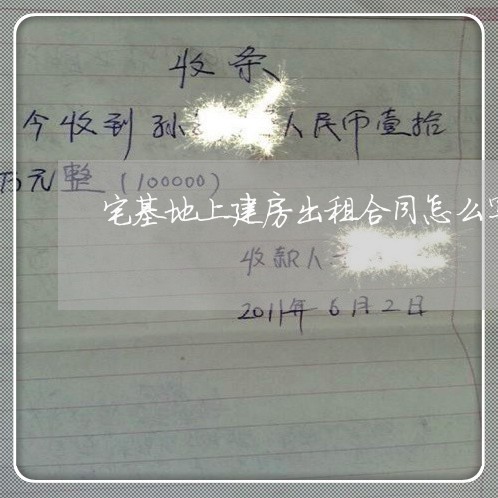 收条
今收到孙 人民币壹拾
万元整(100000)
宅基地上建房出租合同怎么
收款人
2011年6月2日